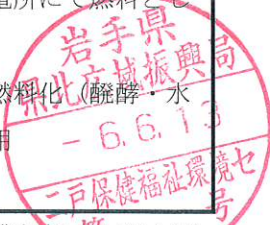 電所にて燃料とし
燃料化（醗酵・水
用
岩手県
県北広域振興局
- 6. 6. 13
二戸保健福祉環境セ
号